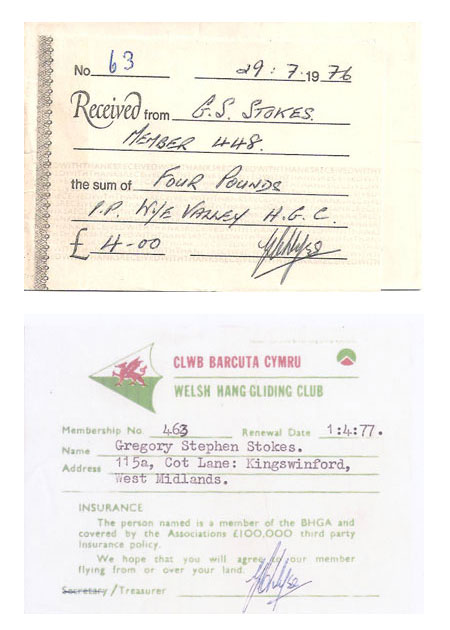 No. 63 29:7.1976
Received from G.S. STOKES.
MEMBER 448.
the sum of FOUR POUNDS
P.P. WYE VALLEY H.G.C.
£ 4-00
CLWB BARCUTA CYMRU
WELSH HANG GLIDING CLUB
Membership No. 463 Renewal Date 1:4:77.
Name Gregory Stephen Stokes.
Address 115a, Cot Lane: Kingswinford,
West Midlands.
INSURANCE
The person named is a member of the BHGA and
covered by the Associations £100,000 third party
insurance policy.
We hope that you will agree to our member
flying from or over your land.
Secretary/Treasurer